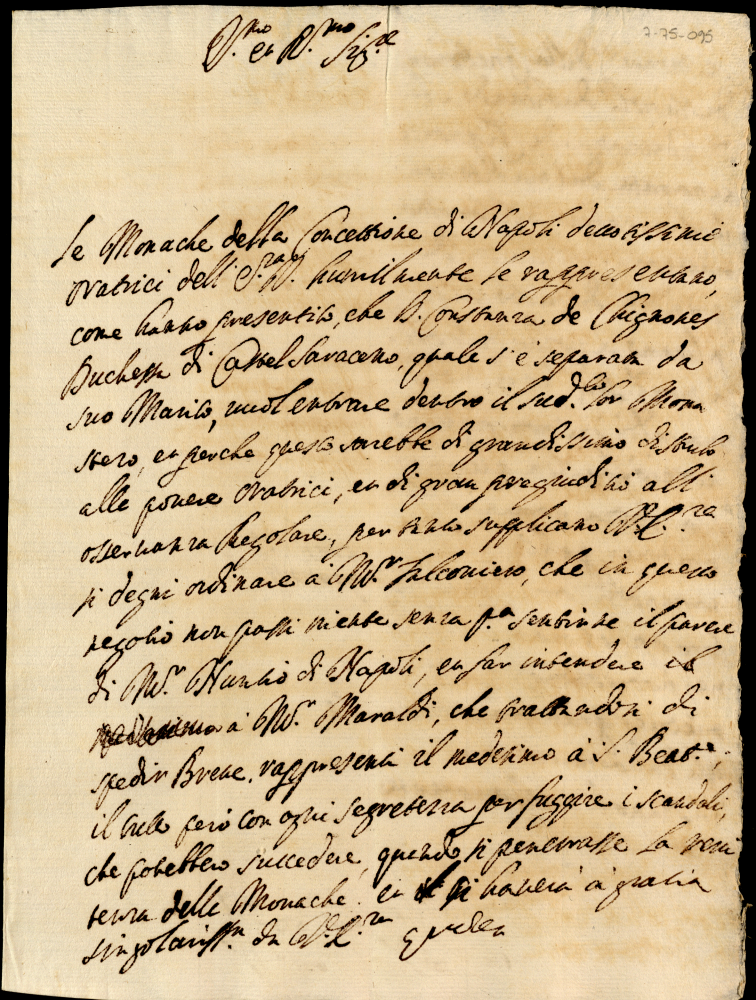 7-75-095
Ill.mo et R.mo Sig.re
Le Monache della Concettione di Napoli devotissime
oratrici dell' E. humilmente le rappresentano,
come hanno presentito, che D. Constanza de
Duchessa di Castel Saraceno, quale s'è separata da
suo Marito, vuol entrare dentro il sud.to lor Mona
stero, et perche questo sarebbe di grandissimo disturbo
alle povere oratrici, et di gran pregiuditio all'
osservanza Regolare, per tanto supplicano V.
si degni ordinare à Mõs.r Falconiero, che in questo
negotio non passi niente senza p.a sentirne il parere
di Mõs.r Nuntio di Napoli, et far intendere il
à Mõs.r Maraldi, che trattandosi di
spedir Breve, rappresenti il medesimo à S. Beat.e;
il tutto però con ogni segretezza per fuggire i scandali,
che potebbero succedere, quando si penetrasse la reni
tenza delle Monache. et si haverà à gratia
singolariss.a da V.